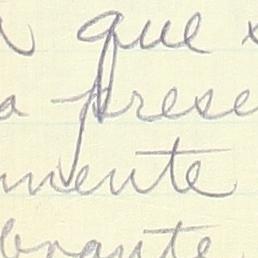 que
a prese
mente
brante